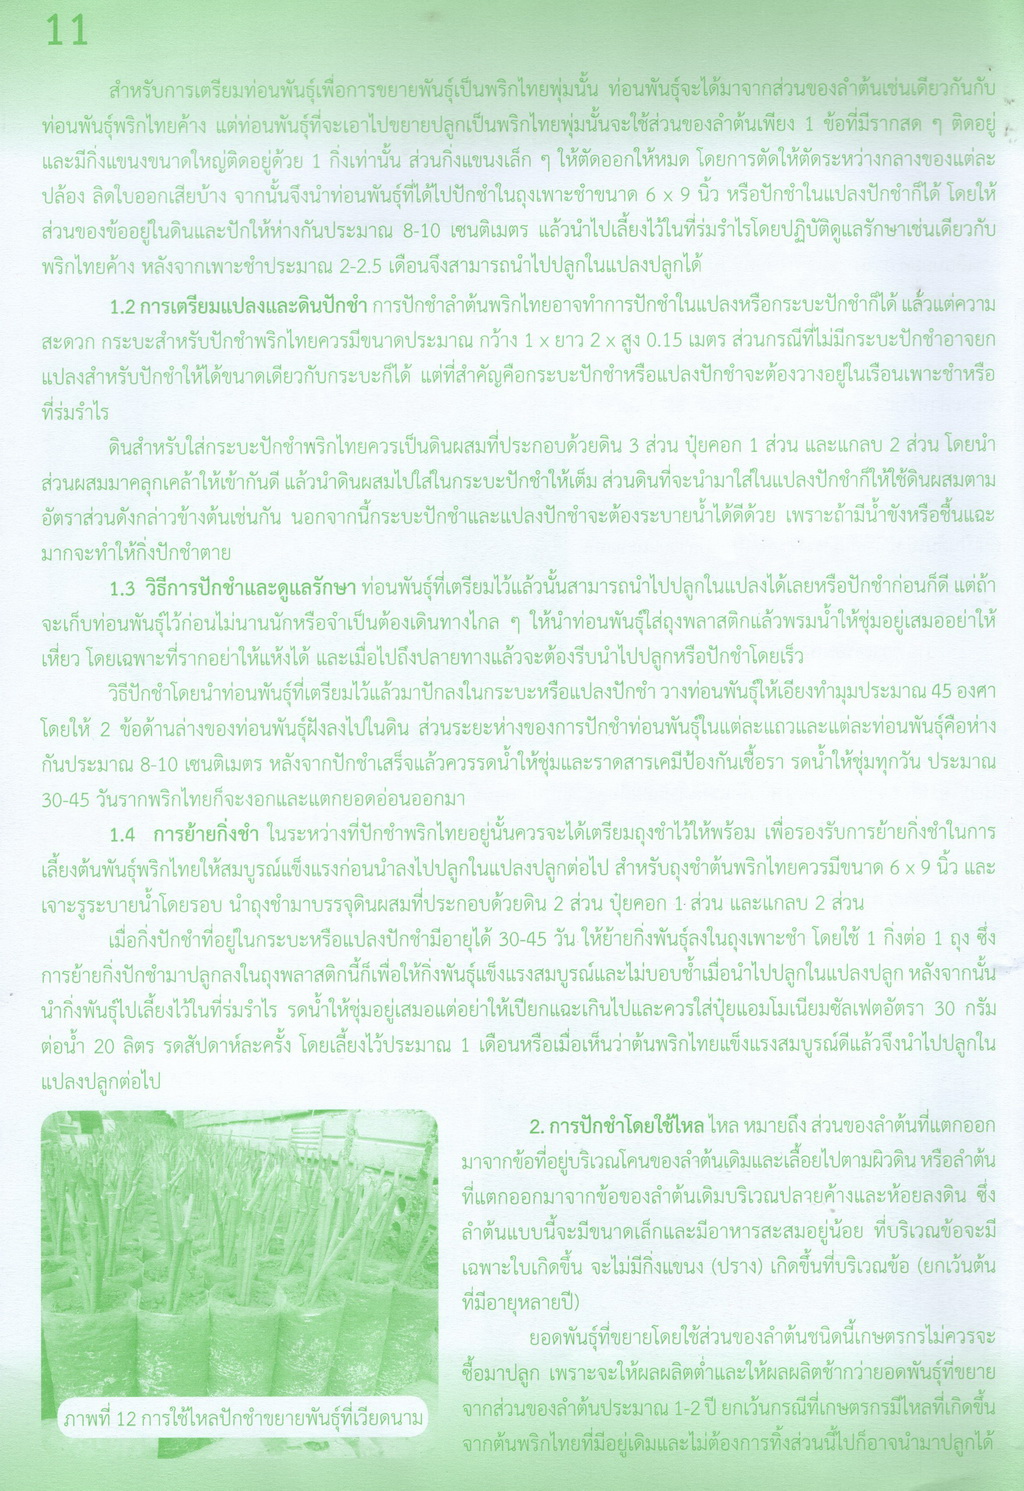 11
สำหรับการเตรียมท่อนพันธุ์เพื่อการขยายพันธุ์เป็นพริกไทยพุ่มนั้น ท่อนพันธุ์จะได้มาจากส่วนของลำต้นเช่นเดียวกันกับ
ท่อนพันธุ์พริกไทยค้าง แต่ท่อนพันธุ์ที่จะเอาไปขยายปลูกเป็นพริกไทยพุ่มนั้นจะใช้ส่วนของลำต้นเพียง 1 ข้อที่มีรากสด ๆ ติดอยู่
และมีกิ่งแขนงขนาดใหญ่ติดอยู่ด้วย 1 กิ่งเท่านั้น ส่วนกิ่งแขนงเล็ก ๆ ให้ตัดออกให้หมด โดยการตัดให้ตัดระหว่างกลางของแต่ละ
ปล้อง ลิดใบออกเสียบ้าง จากนั้นจึงนำท่อนพันธุ์ที่ได้ไปปักชำในถุงเพาะชำขนาด 6 x 9 นิ้ว หรือปักชำในแปลงปักชำก็ได้ โดยให้
ส่วนของข้ออยู่ในดินและปักให้ห่างกันประมาณ 8-10 เซนติเมตร แล้วนำไปเลี้ยงไว้ในที่ร่มรำไรโดยปฏิบัติดูแลรักษาเช่นเดียวกับ
พริกไทยค้าง หลังจากเพาะชำประมาณ 2-2.5 เดือนจึงสามารถนำไปปลูกในแปลงปลูกได้
1.2 การเตรียมแปลงและดินปักชำ การปักชำลำต้นพริกไทยอาจทำการปักชำในแปลงหรือกระบะปักชำก็ได้ แล้วแต่ความ
สะดวก กระบะสำหรับปักชำพริกไทยควรมีขนาดประมาณ กว้าง 1 x ยาว 2 x สูง 0.15 เมตร ส่วนกรณีที่ไม่มีกระบะปักชำอาจยก
แปลงสำหรับปักชำให้ได้ขนาดเดียวกับกระบะก็ได้ แต่ที่สำคัญคือกระบะปักชำหรือแปลงปักชำจะต้องวางอยู่ในเรือนเพาะชำหรือ
ที่ร่มรำไร
ดินสำหรับใส่กระบะปักชำพริกไทยควรเป็นดินผสมที่ประกอบด้วยดิน 3 ส่วน ปุ๋ยคอก 1 ส่วน และแกลบ 2 ส่วน โดยนำ
ส่วนผสมมาคลุกเคล้าให้เข้ากันดี แล้วนำดินผสมไปใส่ในกระบะปักชำให้เต็ม ส่วนดินที่จะนำมาใส่ในแปลงปักชำก็ให้ใช้ดินผสมตาม
อัตราส่วนดังกล่าวข้างต้นเช่นกัน นอกจากนี้กระบะปักชำและแปลงปักชำจะต้องระบายน้ำได้ดีด้วย เพราะถ้ามีน้ำขังหรือชื้นแฉะ
มากจะทำให้กิ่งปักชำตาย
1.3 วิธีการปักชำและดูแลรักษา ท่อนพันธุ์ที่เตรียมไว้แล้วนั้นสามารถนำไปปลูกในแปลงได้เลยหรือปักชำก่อนก็ดี แต่ถ้า
จะเก็บท่อนพันธุ์ไว้ก่อนไม่นานนักหรือจำเป็นต้องเดินทางไกล ๆ ให้นำท่อนพันธุ์ใส่ถุงพลาสติกแล้วพรมน้ำให้ชุ่มอยู่เสมออย่าให้
เหี่ยว โดยเฉพาะที่รากอย่าให้แห้งได้ และเมื่อไปถึงปลายทางแล้วจะต้องรีบนำไปปลูกหรือปักชำโดยเร็ว
วิธีปักชำโดยนำท่อนพันธุ์ที่เตรียมไว้แล้วมาปักลงในกระบะหรือแปลงปักชำ วางท่อนพันธุ์ให้เอียงทำมุมประมาณ 45 องศา
โดยให้ 2 ข้อด้านล่างของท่อนพันธุ์ฝังลงไปในดิน ส่วนระยะห่างของการปักชำท่อนพันธุ์ในแต่ละแถวและแต่ละท่อนพันธุ์คือห่าง
กันประมาณ 8-10 เซนติเมตร หลังจากปักชำเสร็จแล้วควรรดน้ำให้ชุ่มและราดสารเคมีป้องกันเชื้อรา รดน้ำให้ชุ่มทุกวัน ประมาณ
30-45 วันรากพริกไทยก็จะงอกและแตกยอดอ่อนออกมา
1.4 การย้ายกิ่งชำ ในระหว่างที่ปักชำพริกไทยอยู่นั้นควรจะได้เตรียมถุงชำไว้ให้พร้อม เพื่อรองรับการย้ายกิ่งชำในการ
เลี้ยงต้นพันธุ์พริกไทยให้สมบูรณ์แข็งแรงก่อนนำลงไปปลูกในแปลงปลูกต่อไป สำหรับถุงชำต้นพริกไทยควรมีขนาด 6 x 9 นิ้ว และ
เจาะรูระบายน้ำโดยรอบ นำถุงชำมาบรรจุดินผสมที่ประกอบด้วยดิน 2 ส่วน ปุ๋ยคอก 1 ส่วน และแกลบ 2 ส่วน
เมื่อกิ่งปักชำที่อยู่ในกระบะหรือแปลงปักชำมีอายุได้ 30-45 วัน ให้ย้ายกิ่งพันธุ์ลงในถุงเพาะชำ โดยใช้ 1 กิ่งต่อ 1 ถุง ซึ่ง
การย้ายกิ่งปักชำมาปลูกลงในถุงพลาสติกนี้ก็เพื่อให้กิ่งพันธุ์แข็งแรงสมบูรณ์และไม่บอบช้ำเมื่อนำไปปลูกในแปลงปลูก หลังจากนั้น
นำกิ่งพันธุ์ไปเลี้ยงไว้ในที่ร่มรำไร รดน้ำให้ชุ่มอยู่เสมอแต่อย่าให้เปียกแฉะเกินไปและควรใส่ปุ๋ยแอมโมเนียมซัลเฟตอัตรา 30 กรัม
ต่อน้ำ 20 ลิตร รดสัปดาห์ละครั้ง โดยเลี้ยงไว้ประมาณ 1 เดือนหรือเมื่อเห็นว่าต้นพริกไทยแข็งแรงสมบูรณ์ดีแล้วจึงนำไปปลูกใน
แปลงปลูกต่อไป
2. การปักชำโดยใช้ไหล ไหล หมายถึง ส่วนของลำต้นที่แตกออก
มาจากข้อที่อยู่บริเวณโคนของลำต้นเดิมและเลื้อยไปตามผิวดิน หรือลำต้น
ที่แตกออกมาจากข้อของลำต้นเดิมบริเวณปลายค้างและห้อยลงดิน ซึ่ง
ลำต้นแบบนี้จะมีขนาดเล็กและมีอาหารสะสมอยู่น้อย ที่บริเวณข้อจะมี
เฉพาะใบเกิดขึ้น จะไม่มีกิ่งแขนง (ปราง) เกิดขึ้นที่บริเวณข้อ (ยกเว้นต้น
ที่มีอายุหลายปี)
ยอดพันธุ์ที่ขยายโดยใช้ส่วนของลำต้นชนิดนี้เกษตรกรไม่ควรจะ
ซื้อมาปลูก เพราะจะให้ผลผลิตต่ำและให้ผลผลิตช้ากว่ายอดพันธุ์ที่ขยาย
จากส่วนของลำต้นประมาณ 1-2 ปี ยกเว้นกรณีที่เกษตรกรมีไหลที่เกิดขึ้น
จากต้นพริกไทยที่มีอยู่เดิมและไม่ต้องการทิ้งส่วนนี้ไปก็อาจนำมาปลูกได้
ภาพที่ 12 การใช้ไหลปักชำขยายพันธุ์ที่เวียดนาม